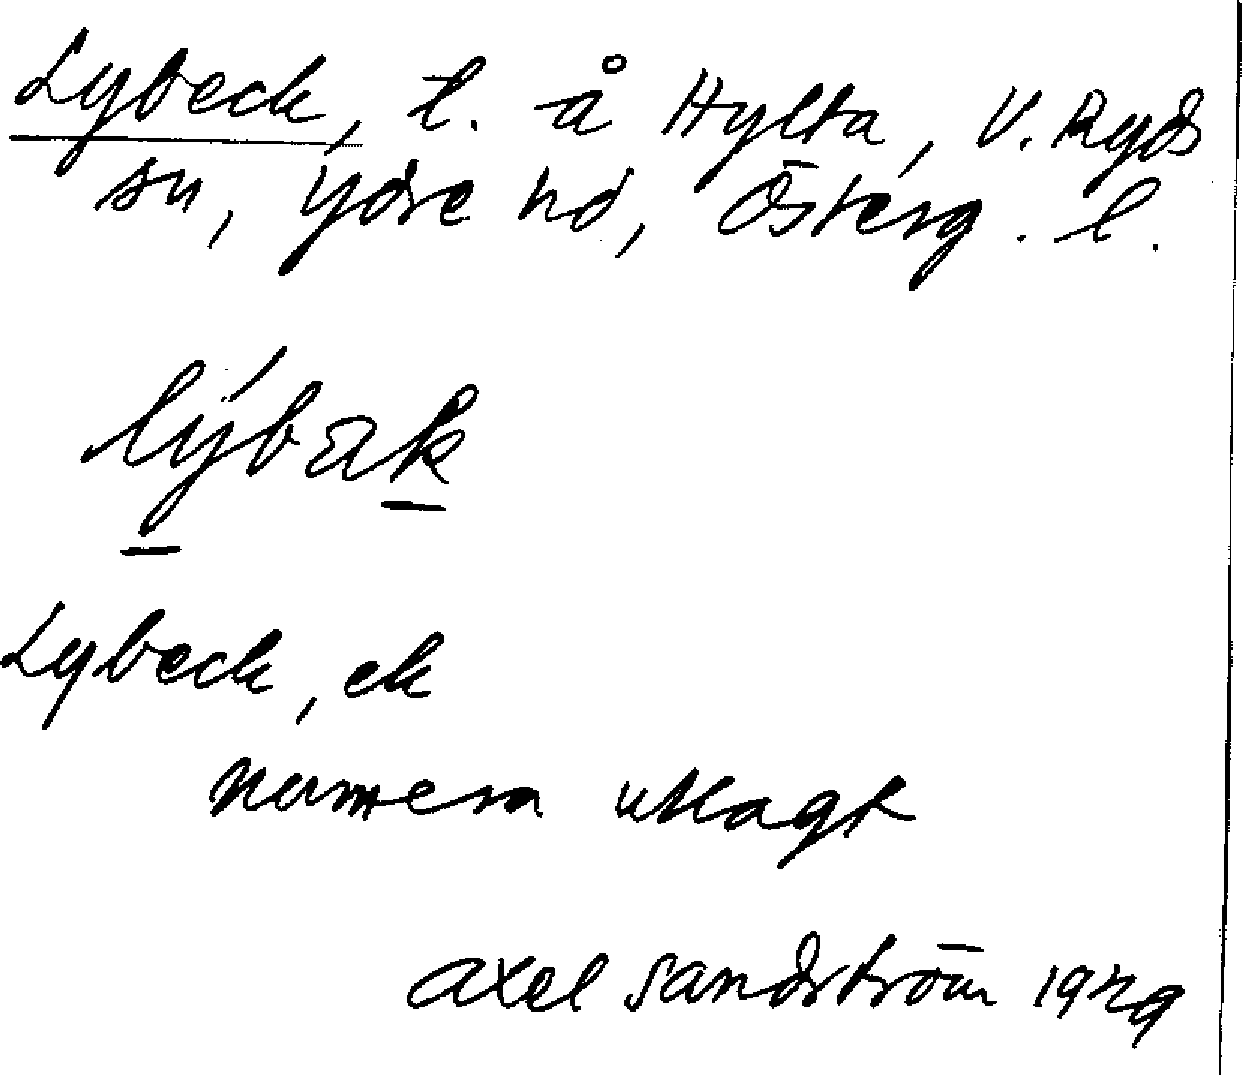 Lybeck, t. å Hylta, V. Ryds
sn, Ydre hd, Österg. l.
lýbäk
Lybeck, ek
numera utlagt
Axel Sandström 1929